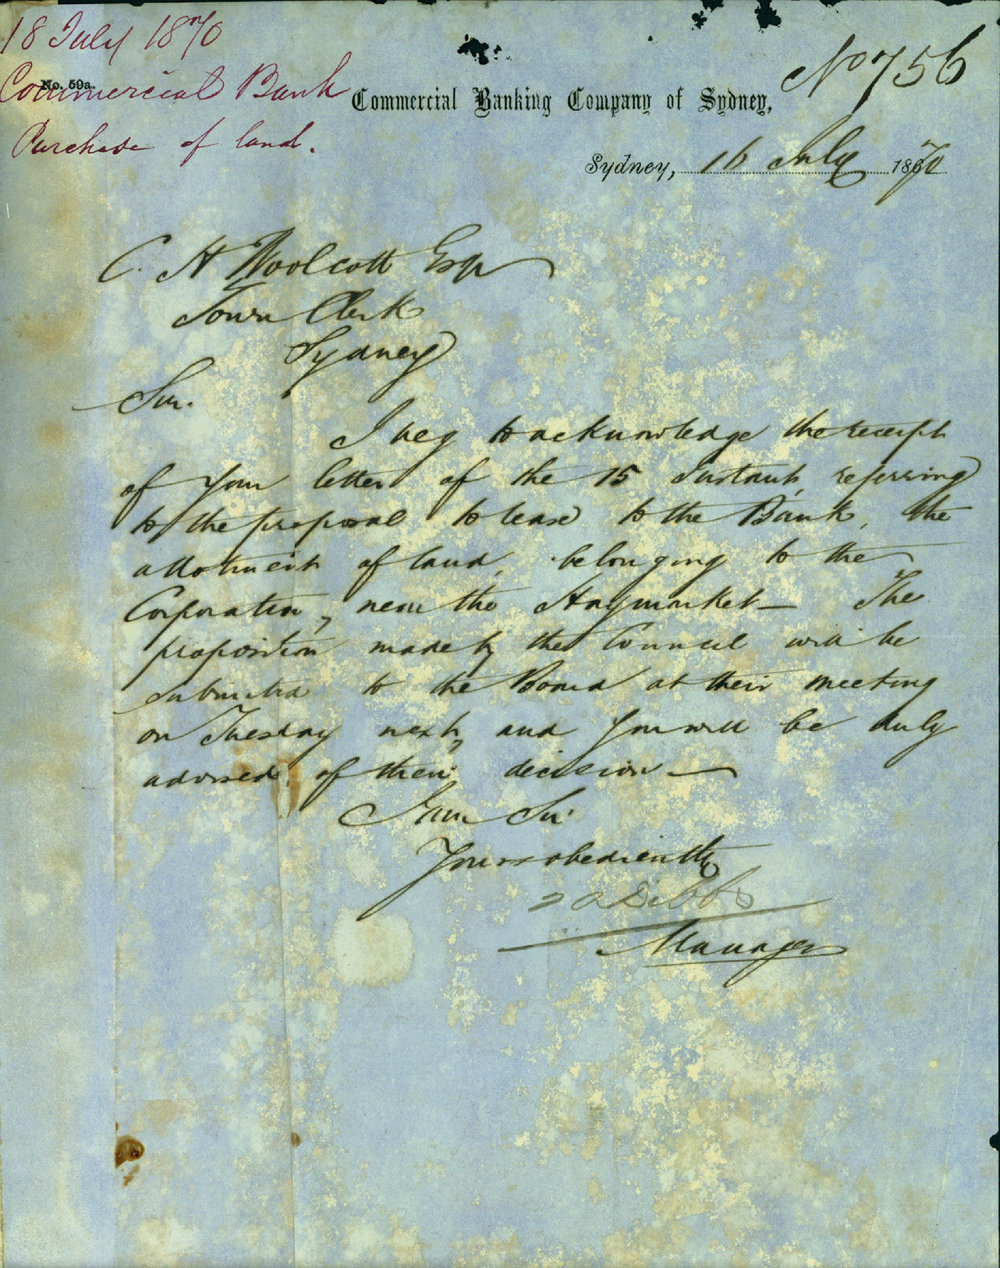 18 July 1870
Commercial Bank
Purchase of land.
No. 59a.
No 756
Commercial Banking Company of Sydney,
Sydney, 16 July 1870
C. H Woolcott Esqr
Town Clerk
Sydney
Sir.
I beg to acknowledge the receipt
of your letter of the 15 Instant, referring
to the proposal to lease to the Bank, the
allotment of land, belonging to the
Corporation, near the Haymarket – The
proposition made by the Council will be
submitted to the Board at their meeting
on Tuesday next, and you will be duly
advised of their decision –
I am Sir
Yours obediently
Dibbs
Manager